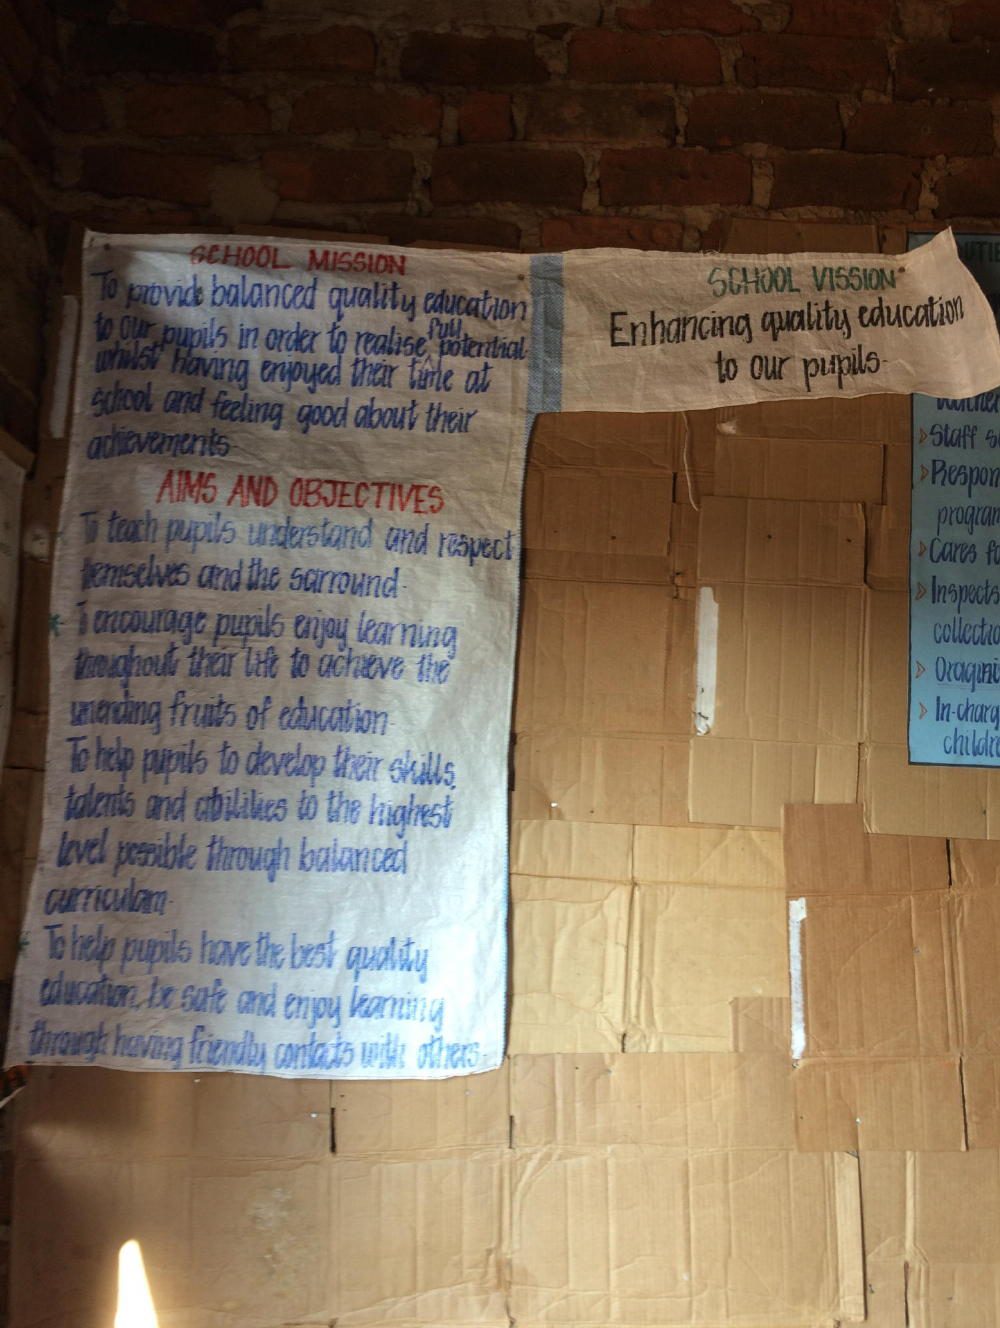 SCHOOL MISSION
To provide balanced quality education
to our pupils in order to realise full potential
whilst having enjoyed their time at
school and feeling good about their
achievements
AIMS AND OBJECTIVES
To teach pupils understand and respect
themselves and the sarround.
To encourage pupils enjoy learning
throughout their life to achieve the
unending fruits of education.
To help pupils to develop their skills,
talents and abilities to the highest
level possible through balanced
curriculam.
To help pupils have the best quality
education, be safe and enjoy learning
through having friendly contacts with others.
SCHOOL VISSION
Enhancing quality education
to our pupils.
Staff
Cares
Inspects